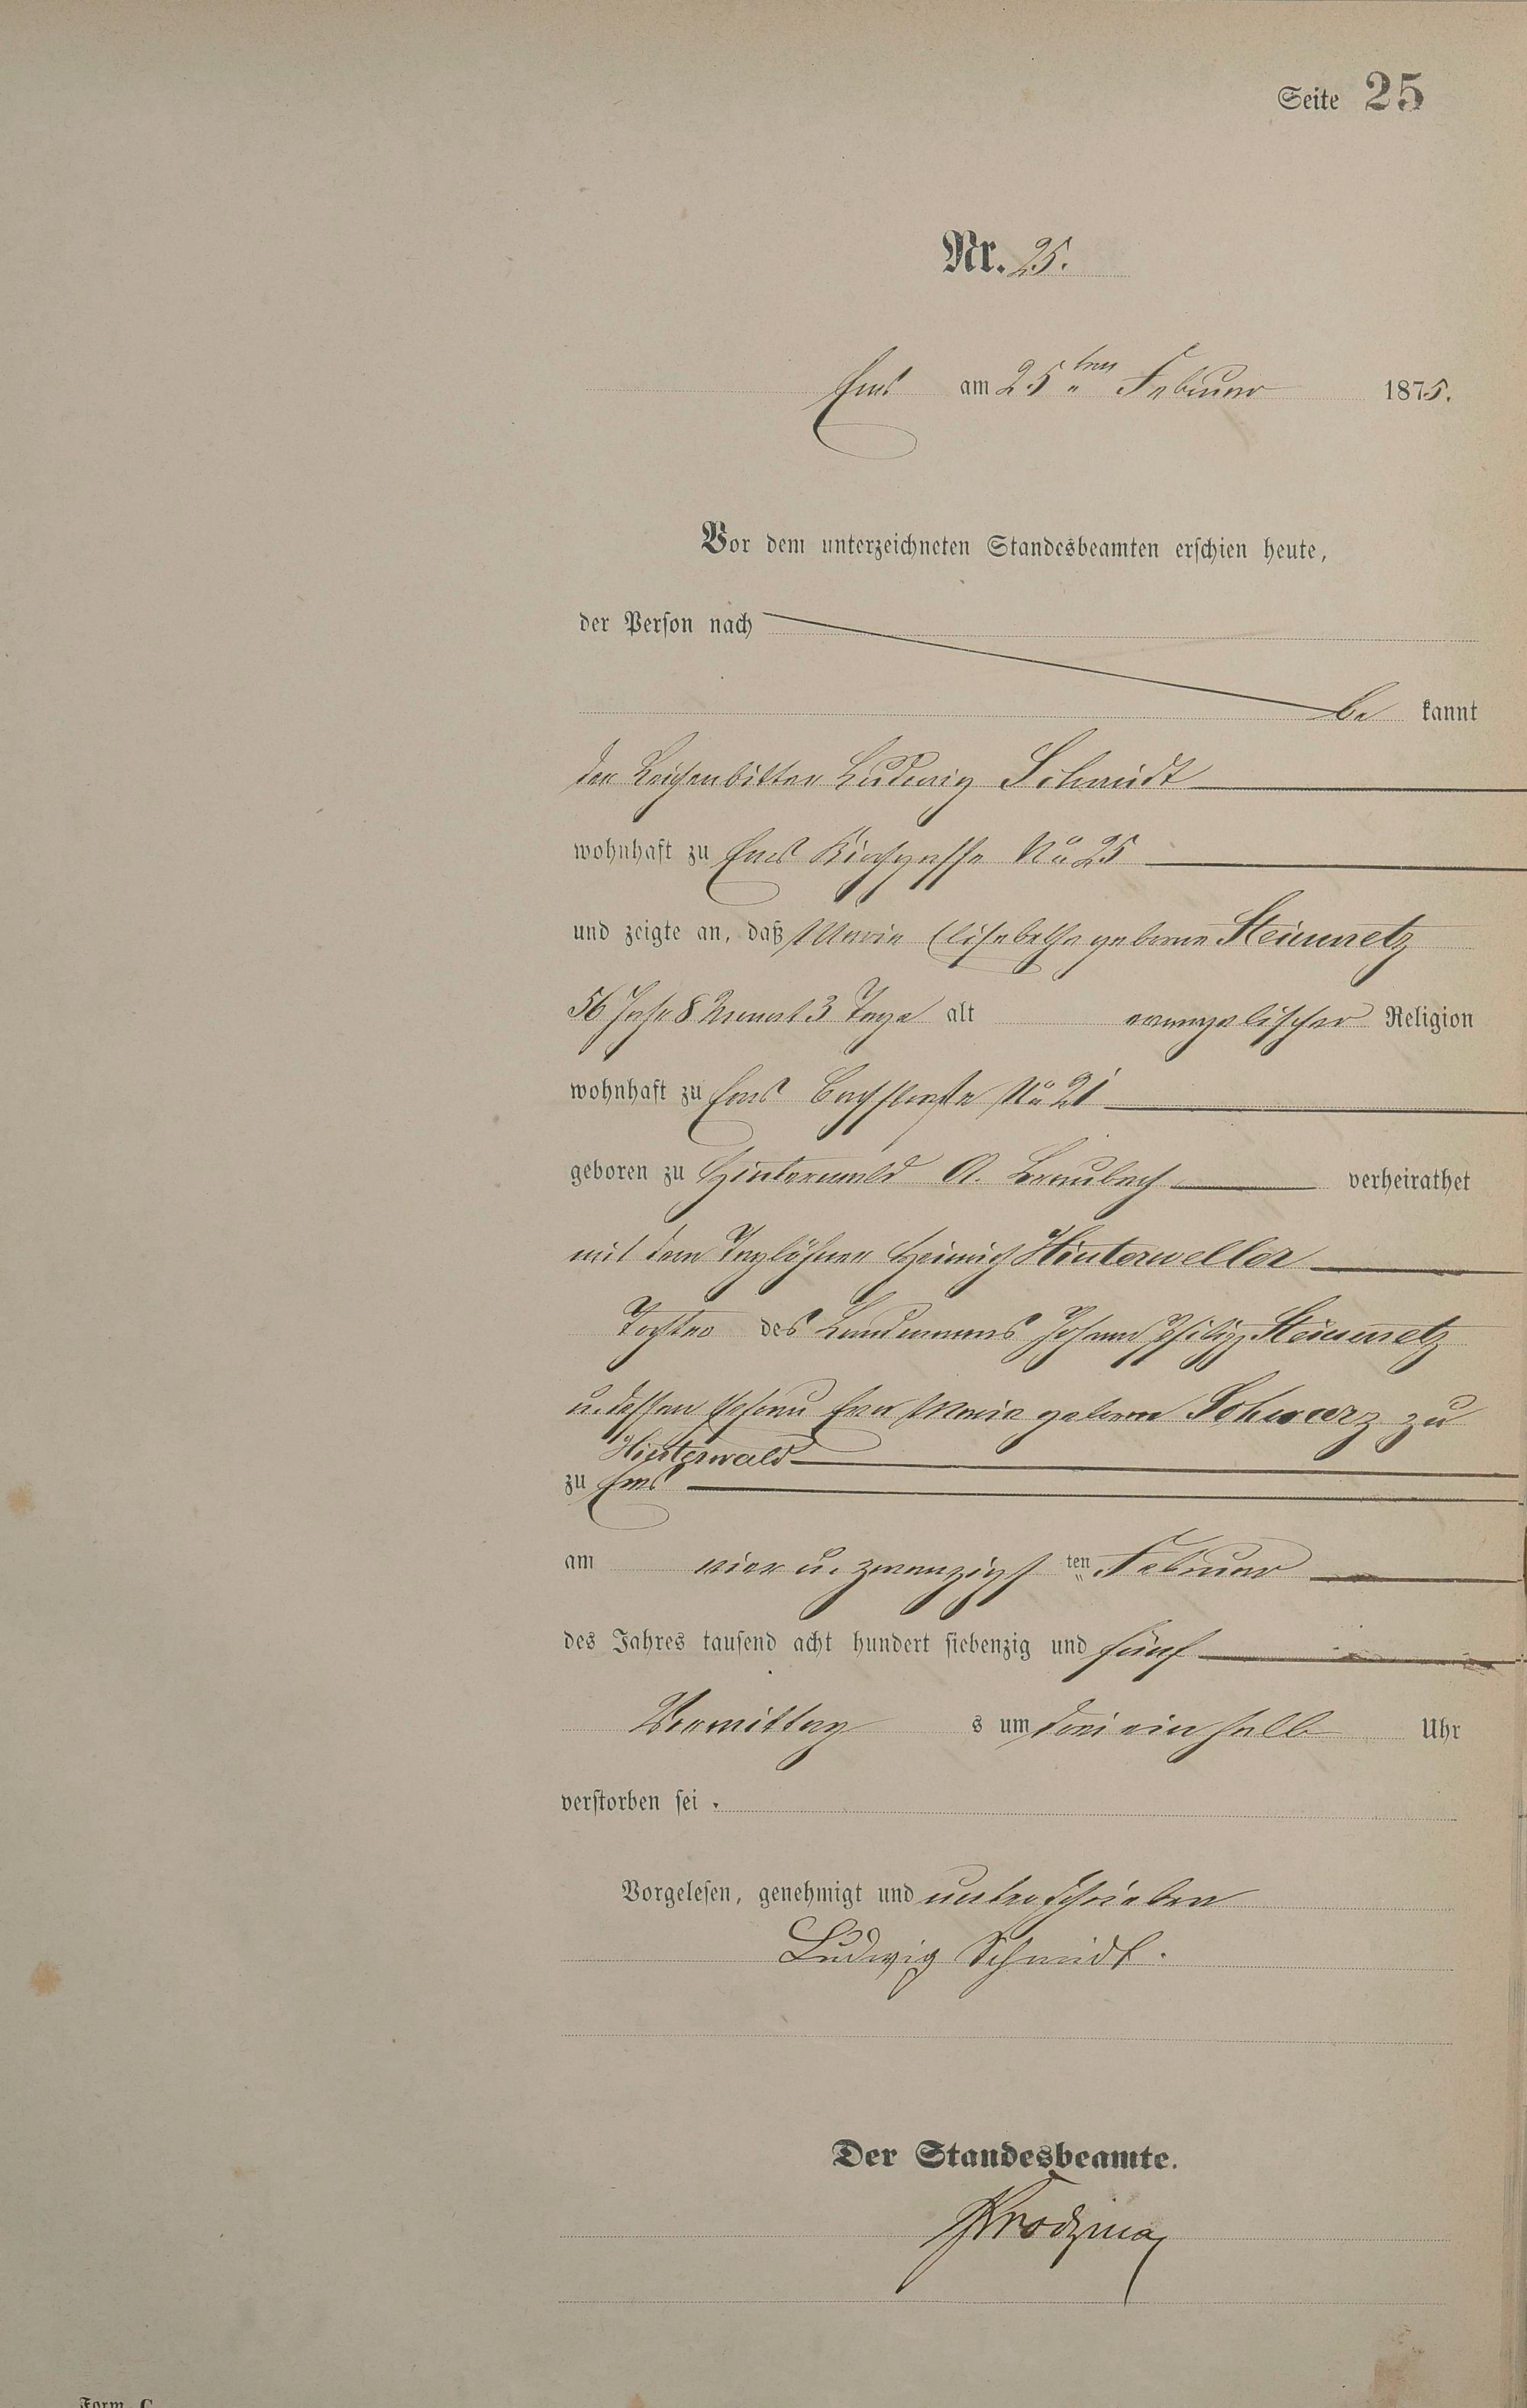 Seite 25
Nr. 25.
Ems am 25ten Februar 1875.
Vor dem unterzeichneten Standesbeamten erschien heute,
der Person nach
be kannt
der Leichenbitter Ludwig Schmidt
wohnhaft zu Ems Kirchgasse No 25
und zeigte an, daß Maria Elisabetha geborne Steinmetz
56 Jahr 8 Monat 3 Tage alt evangelischer Religion
wohnhaft zu Ems Bachstraße No 21
geboren zu Hinterwald A. Braubach verheirathet
mit dem Taglöhner Heinrich Hinterweller
Tochter des Landmanns Johann Philipp Steinmetz
u. dessen Ehefrau Eva Maria geborne Schwarz zu
Hinterwald
zu Ems
am vier u. zwanzigsten Februar
des Jahres tausend acht hundert siebenzig und fünf
Vormittags um drei ein halb Uhr
verstorben sei.
Vorgelesen, genehmigt und unterschrieben
Ludwig Schmidt.
Der Standesbeamte.
Form. C